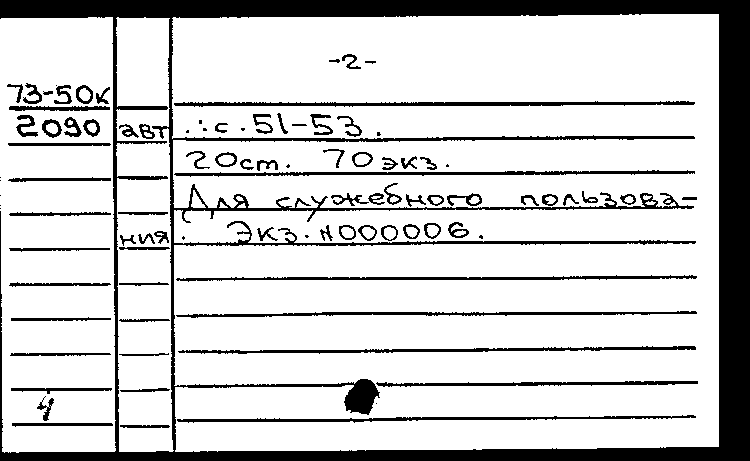 -2-
73-50к
2090 авт.:с.51-53.
20см. 70экз.
Для служебного пользова-
ния. Экз.№000006.
4